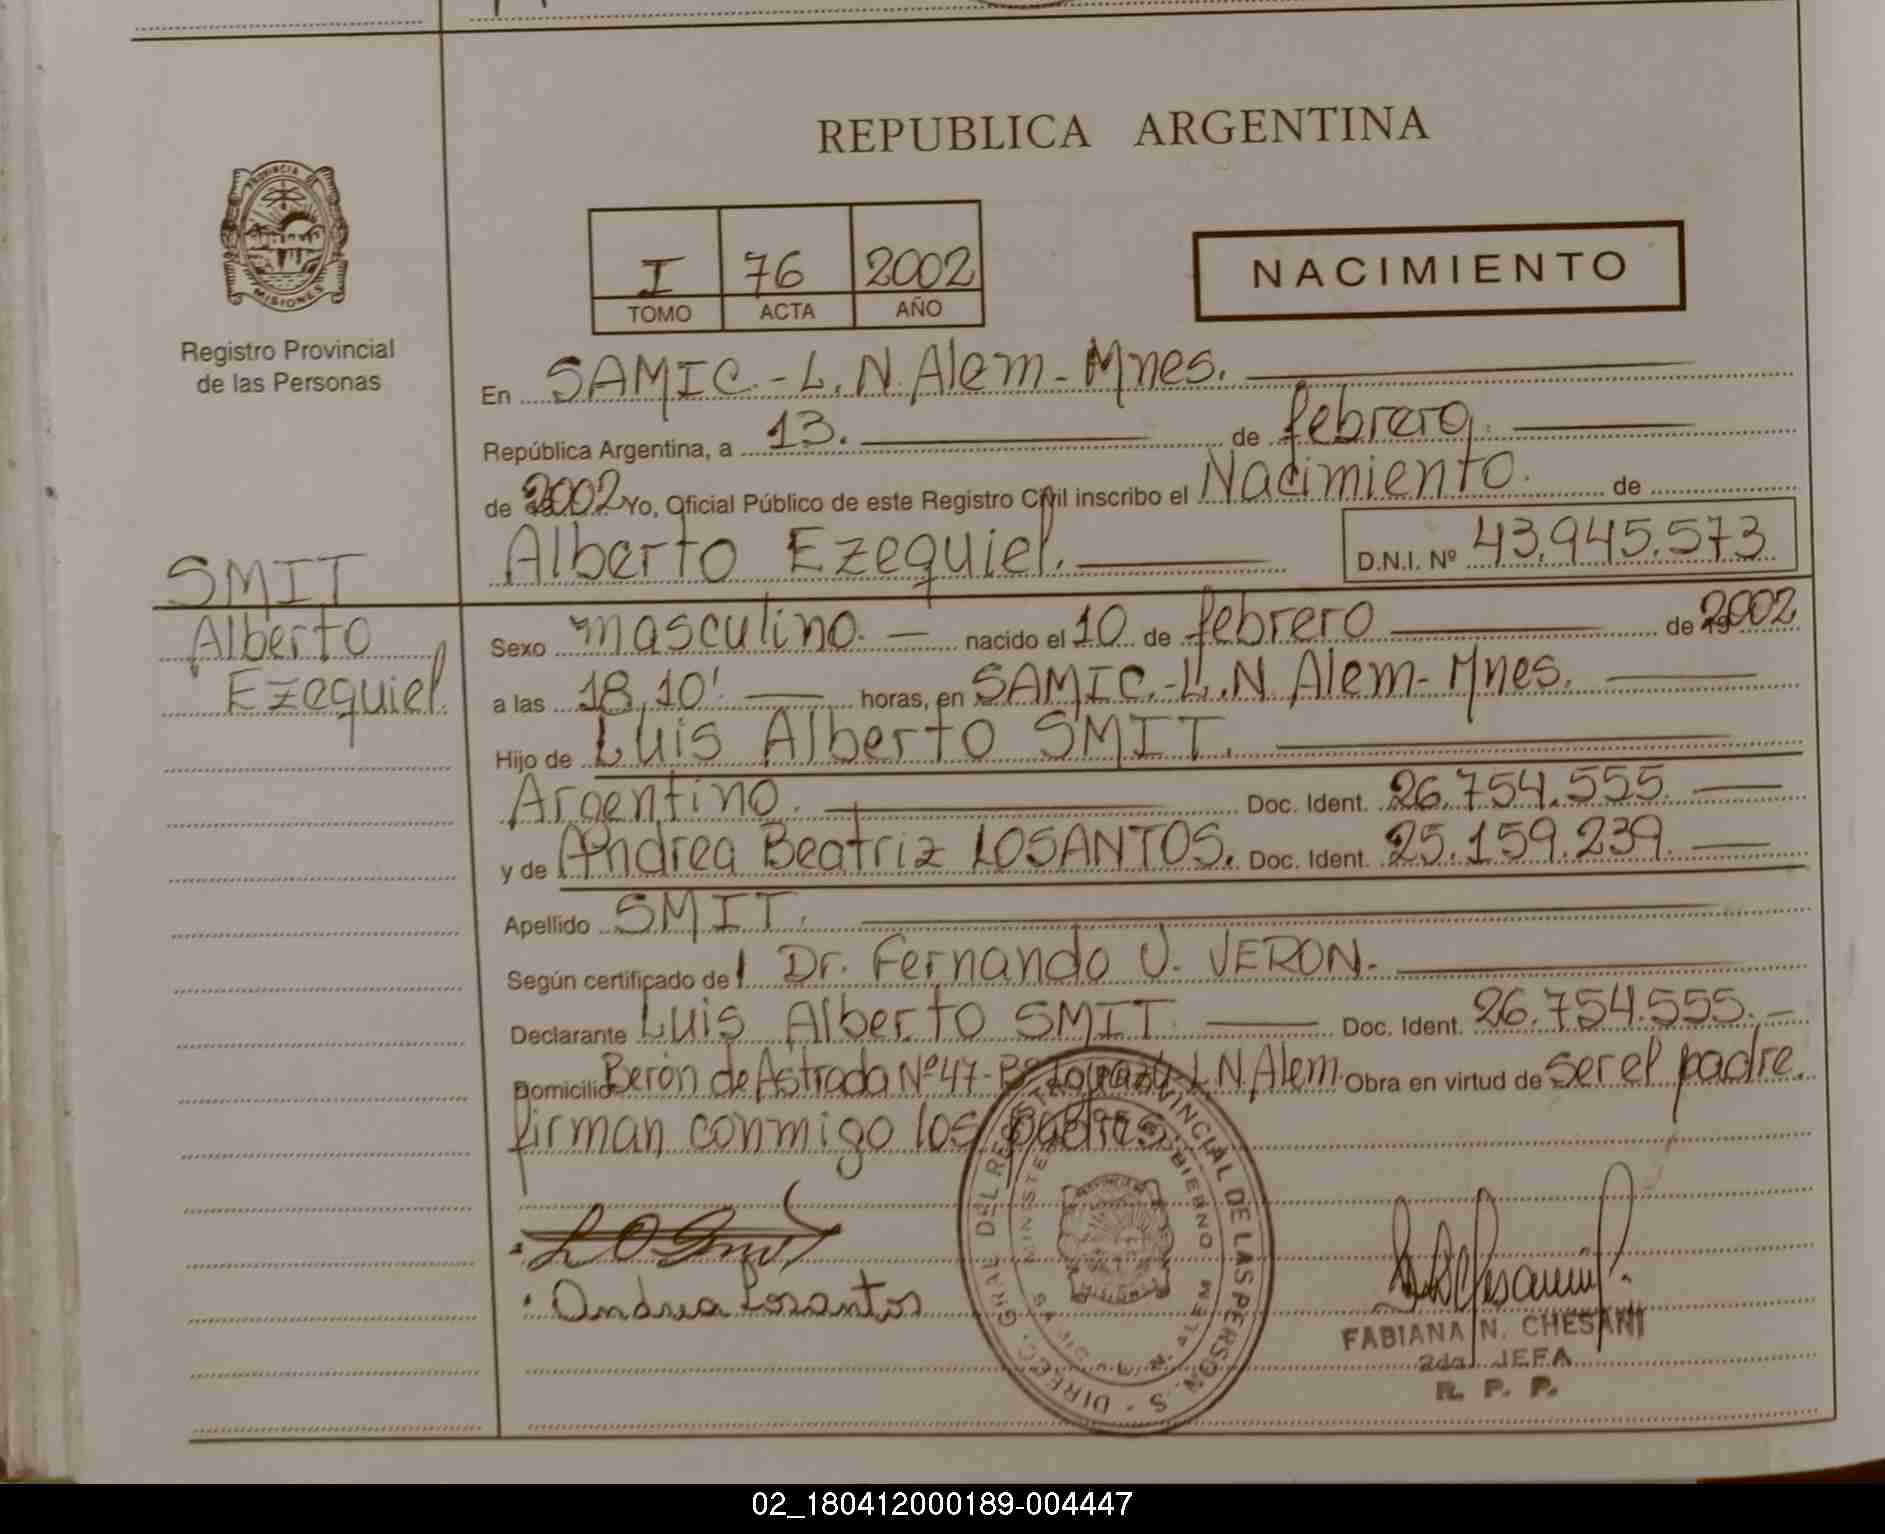 REPUBLICA ARGENTINA
PROVINCIA DE
MISIONES
Registro Provincial
de las Personas
I 76 2002
TOMO ACTA AÑO
NACIMIENTO
En SAMIC.-L.N.Alem-Mnes.
República Argentina, a 13. de febrero.
de 2002 Yo, Oficial Público de este Registro Civil inscribo el Nacimiento. de
Alberto Ezequiel. D.N.I. Nº 43.945.573
SMIT
Alberto
Ezequiel.
Sexo masculino. nacido el 10 de febrero de 2002
a las 18,10' horas, en SAMIC.-L.N Alem-Mnes.
Hijo de Luis Alberto SMIT.
Argentino. Doc. Ident. 26.754.555.
y de Andrea Beatriz LOSANTOS. Doc. Ident. 25.159.239.
Apellido SMIT.
Según certificado del Dr. Fernando J. VERON.
Declarante Luis Alberto SMIT. Doc. Ident. 26.754.555.
Domicilio Berón de Astrada Nº 47- L.N.Alem. Obra en virtud de ser el padre.
firman conmigo los padres.
Andrea Losantos
DIREC. GRAL DEL REGISTRO PROVINCIAL DE LAS PERSONAS
L. N. ALEM
FABIANA N. CHESANI
2da. JEFA
R. P. P.
02_180412000189-004447